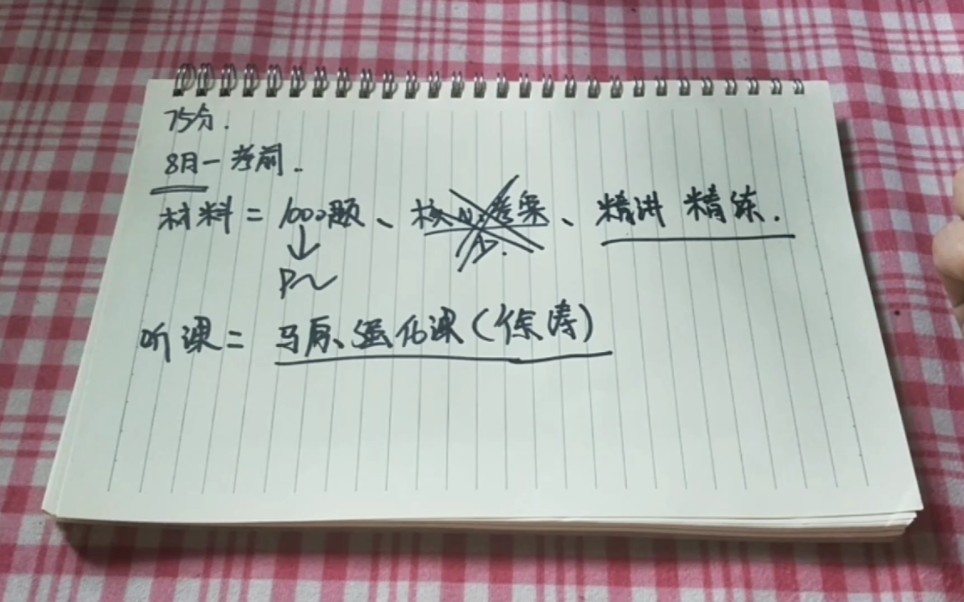 75分.
8月一考前.
材料= 1000题、核心考案、精讲 精练.
↓
P~
听课= 马原、强化课(徐涛)